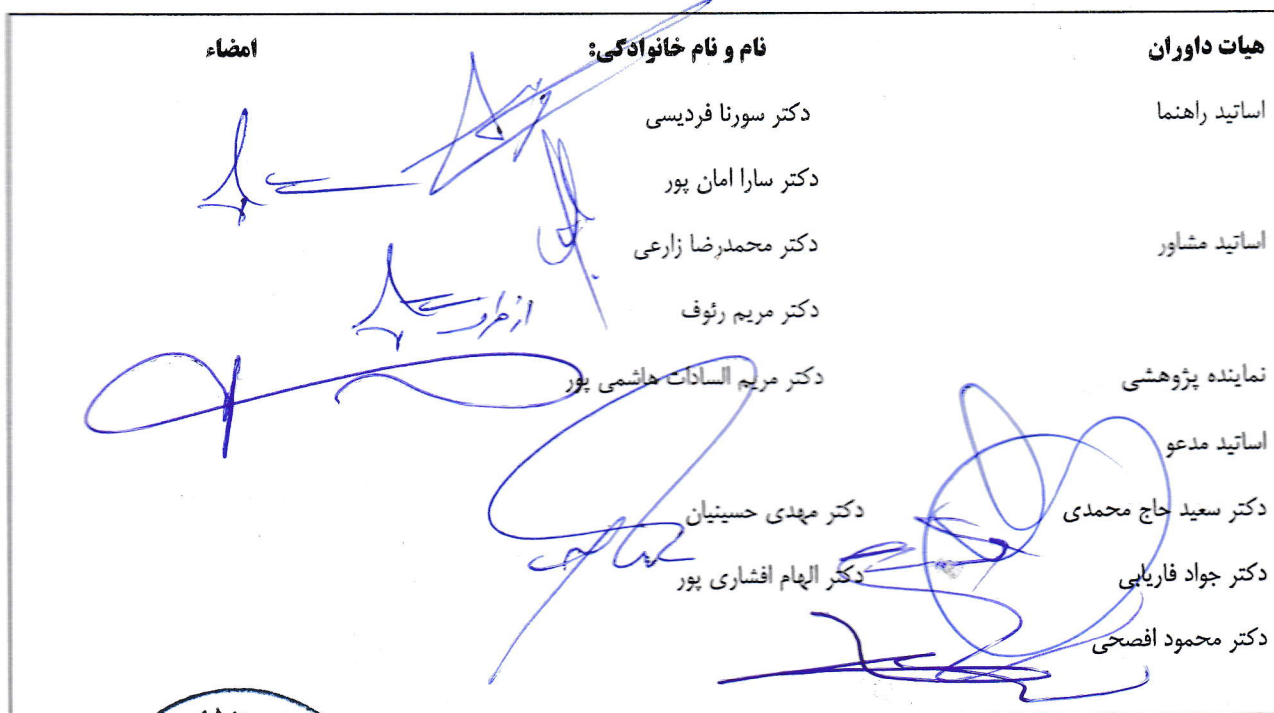 هیات داوران نام و نام خانوادگی: امضاء
اساتید راهنما دکتر سورنا فردیسی
دکتر سارا امان پور
اساتید مشاور دکتر محمدرضا زارعی
دکتر مریم رئوف از طرف
نماینده پژوهشی دکتر مریم السادات هاشمی پور
اساتید مدعو
دکتر سعید حاج محمدی دکتر مهدی حسینیان
دکتر جواد فاریابی دکتر الهام افشاری پور
دکتر محمود افصحی